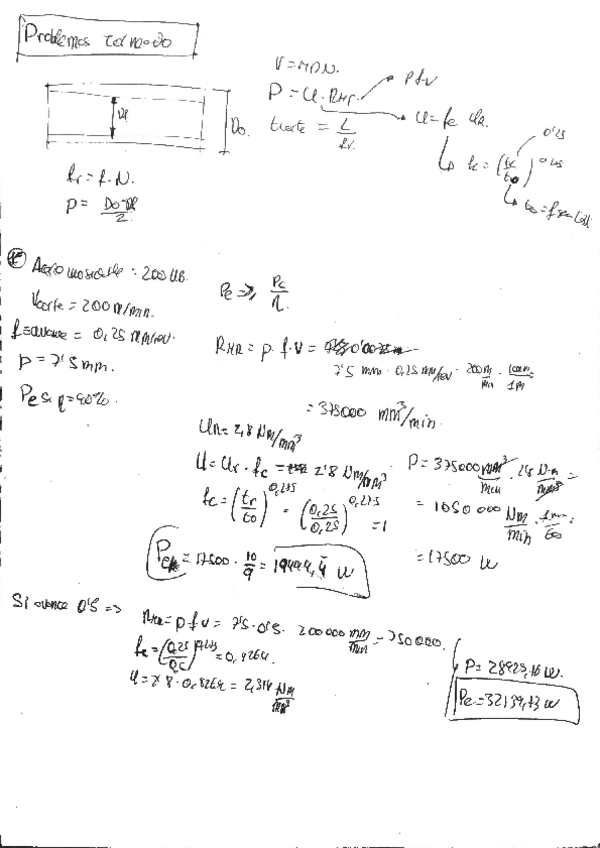 Problemas torneado
V = π D N.
P = U · RHR.
p f v
U = fc · UR.
tcorte = L / fr.
Do.
Df
fc = (tr / to)
0'25
to = f sen
fr = f · N.
P = Do - Df / 2
Acero inoxidable : 200 HB.
Vcorte = 200 m/min.
f = avance = 0,25 mm/rev.
p = 7'5 mm.
Pe si η = 90%.
Pe => Pc / η.
RHR = p · f · v =
7'5 mm · 0,25 mm/rev · 200 m/min · 1000m / 1m
= 375000 mm³/min.
UR = 2,8 Nm/mm³
U = Ur · fc = 2'8 Nm/mm³
fc = (tr / to)^0,295 = (0,25 / 0,25)^0,295 = 1
P = 375000 mm³/min · 2'8 N·m/mm³ =
= 1050000 Nm/min · 1 min/60 =
= 17500 W
Pe = 17500 · 10/9 = 19444,4 W
Si avance 0'5 =>
RHR = p f v = 7'5 · 0'5 · 200000 mm/min = 750000.
= 0,8264
U = 2'8 · 0,8264 = 2,314 Nm/mm³
P = 28925,76 W.
Pe = 32139,73 W